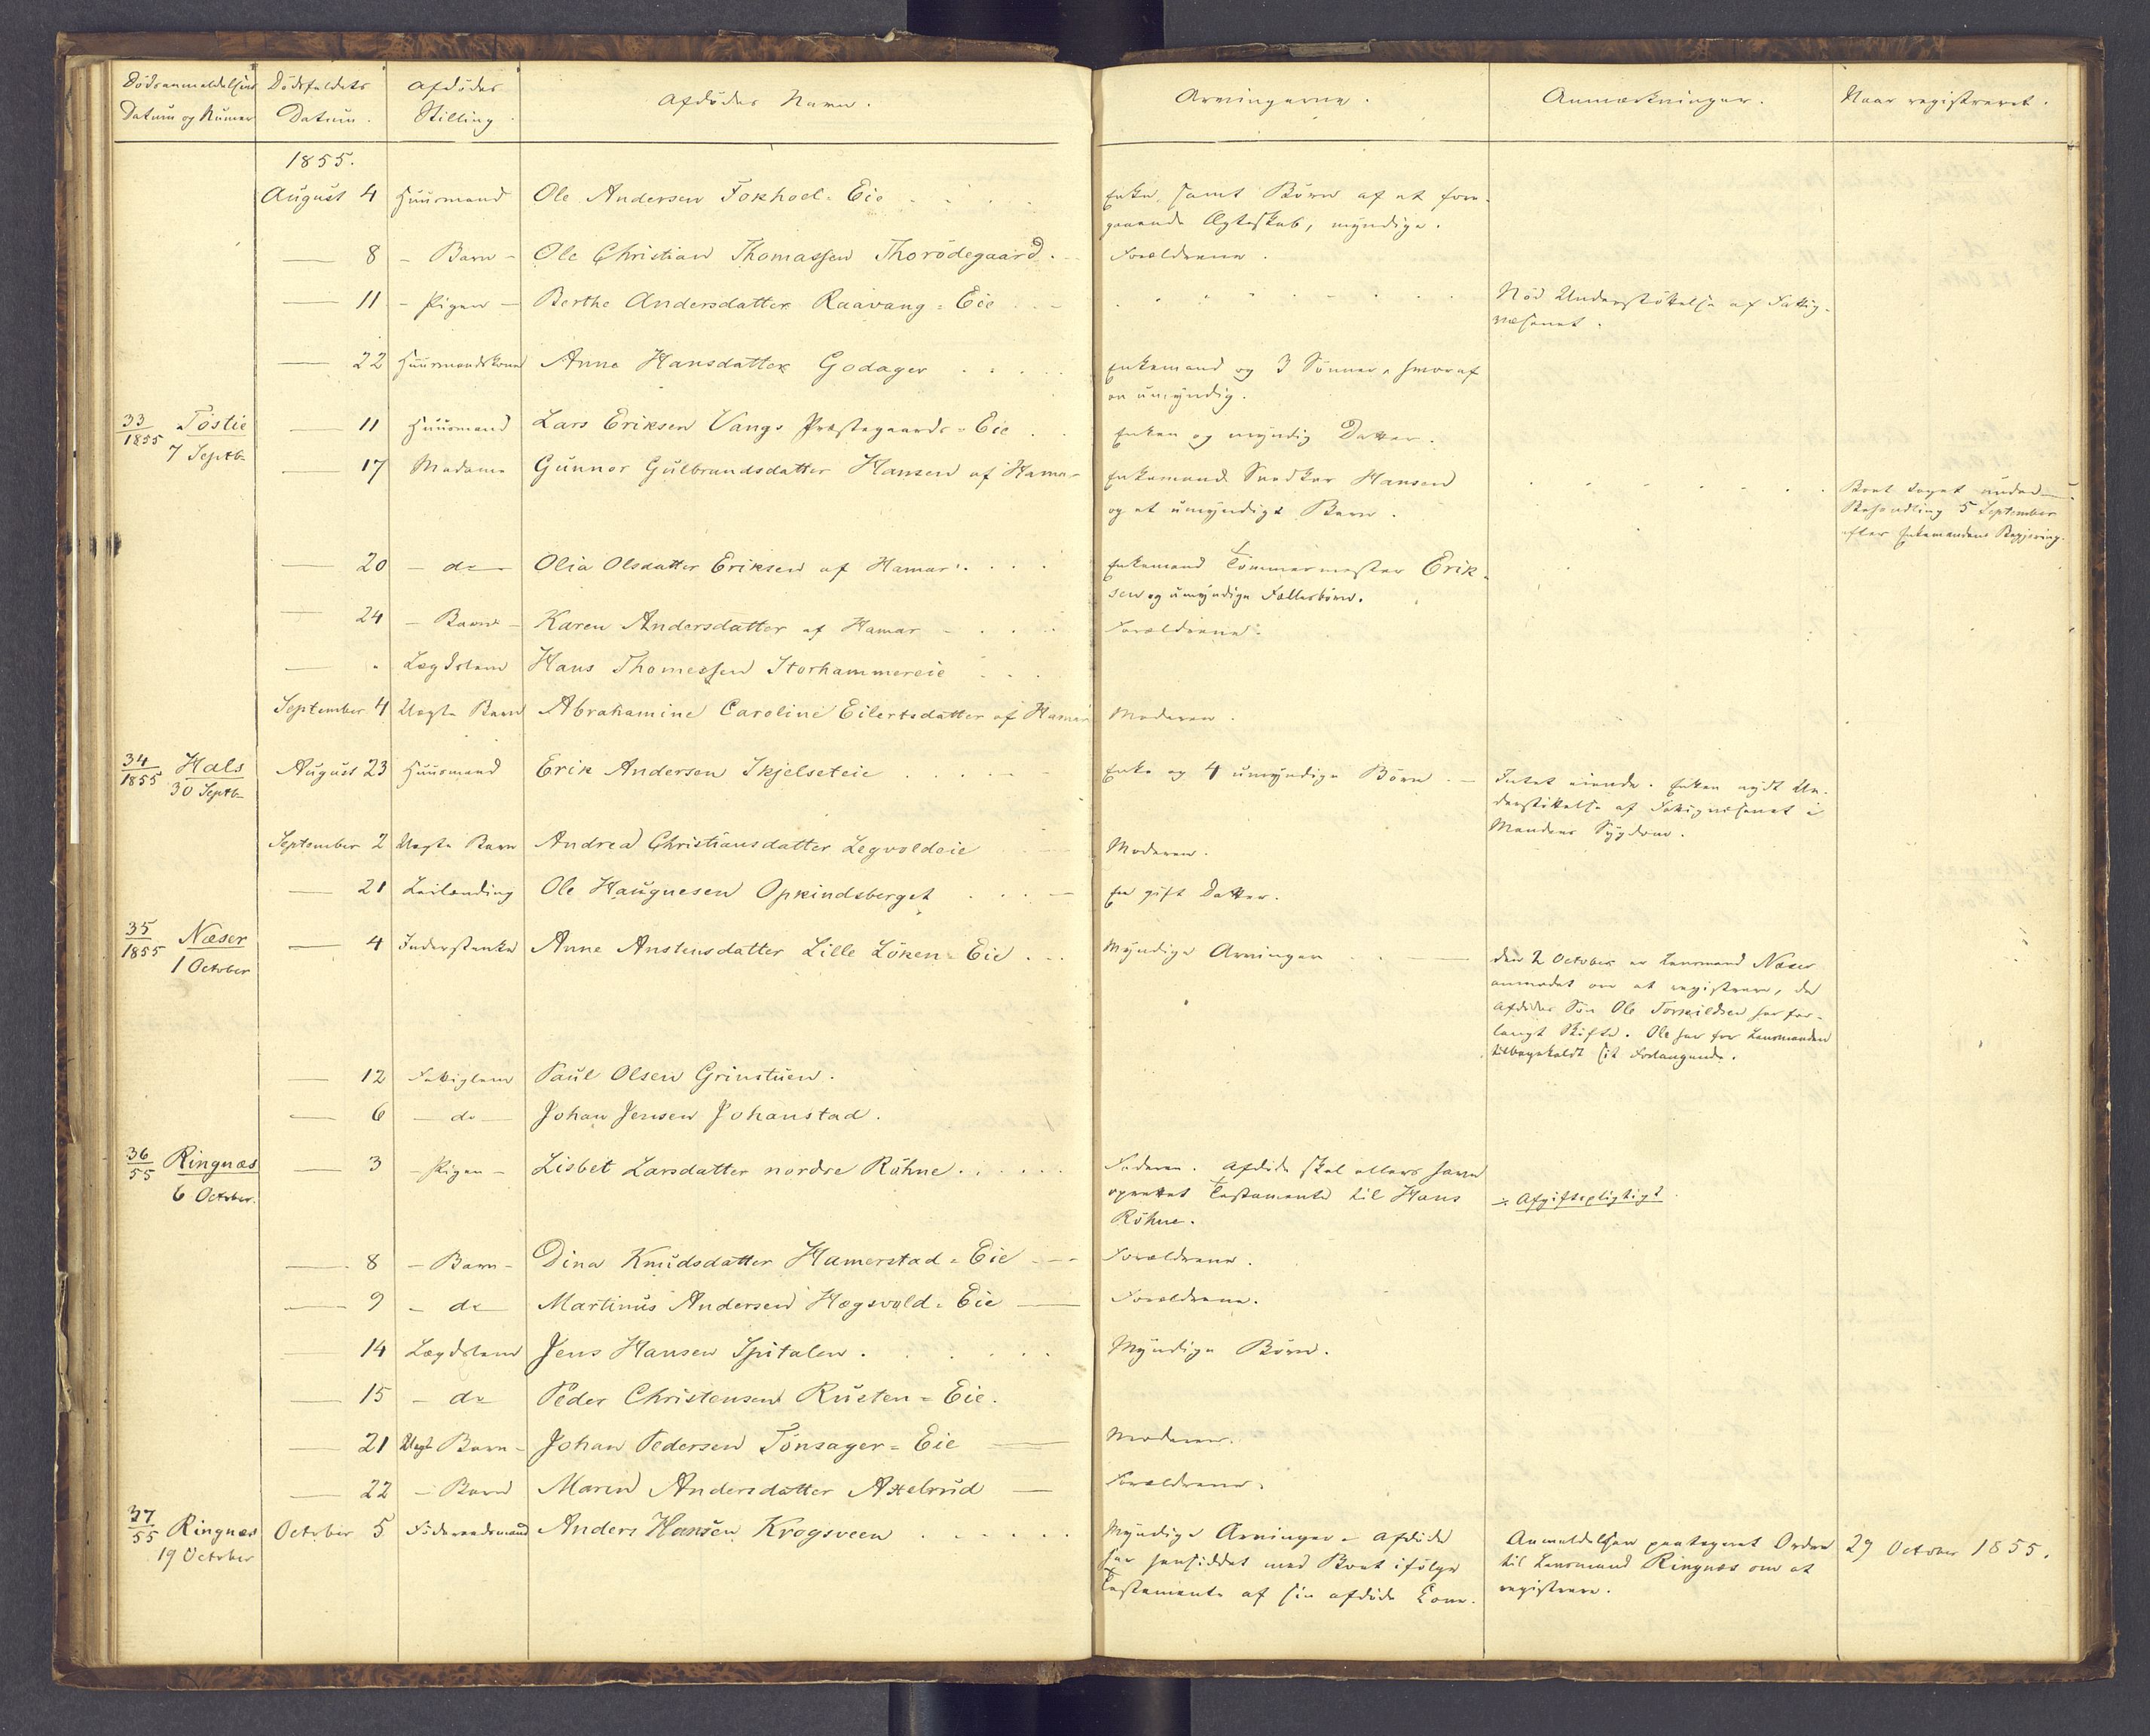 Dödsanmeldelsens Dödsfaldets Afdödes Afdödes Navn. Arvingerne. Anmærkninger. Naar registreret.
Datum og Numer Datum. Stilling.
1855.
August 4 Huusmand Ole Andersen Fokhoel-Eie Enke, samt Börn af et fore-
gaaende Ægteskab, myndige.
— 8 - Barn - Ole Christian Thomassen Thorödegaard. Forældrene.
— 11 - Pigen - Berthe Andersdatter Raavang-Eie Nöd Understöttelse af Fattig-
væsenet.
— 22 Huusmandskone Anne Hansdatter Godager Enkemand og 3 Sönner, hvoraf
en umyndig.
33/1855 Töstie — 11 Huusmand Lars Eriksen Vangs Præstegaards-Eie Enken og myndig Datter.
7 Septb.
— 17 Madame Gunnor Gulbrandsdatter Hansen af Hamar Enkemand Snedker Hansen Boet taget under
og et umyndigt Barn. Behandling 5 September
efter Enkemandens Begjæring.
— 20 - do - Olia Olsdatter Eriksen af Hamar. Enkemand Tömmermester Erik-
sen og umyndige Fællesbörn.
— 24 - Barn - Karen Andersdatter af Hamar Forældrene.
— - Lægdslem Hans Thomessen Storhammereie
September 4 Uægte Barn Abrahamine Caroline Eilertsdatter af Hamar Moderen.
34/1855 Hals August 23 Huusmand Erik Andersen Skjelseteie Enke og 4 umyndige Börn. — Intet eiende. Enken nydt Un-
30 Septb. derstöttelse af Fattigvæsenet i
Mandens Sygdom.
September 2 Uægte Barn Andrea Christiansdatter Legvoldeie Moderen.
— 21 Leilænding Ole Haugnesen Opkindsberget En gift Datter.
35/1855 Næser — 4 Inderstenke Anne Anstensdatter Lille Löken-Eie Myndige Arvinger Den 2 October er Lensmand Næser
1 October anmodet om at registrere, da
Afdödes Sön Ole Torkildsen har for-
langt Skifte. Ole har for Lensmanden
tilbagekaldt sit Forlangende.
— 12 Fattiglem Paul Olsen Grinstuen.
— 6 - do - Johan Jensen Johanstad.
36/55 Ringnæs — 3 - Pigen - Lisbet Larsdatter nordre Röhne Faderen. Afdöde skal ellers have
6 October. oprettet Testamente til Hans Afgiftspligtigt
Röhne.
— 8 - Barn - Dina Knudsdatter Hamerstad-Eie Forældrene.
— 9 - do Martinus Andersen Hogsvold-Eie Forældrene.
— 14 Lægdslem Jens Hansen Spitalen. Myndige Börn.
— 15 - do Peder Christensen Rusten-Eie.
— 21 Uægt Barn - Johan Pedersen Tönsager-Eie Moderen.
— 22 - Barn Maren Andersdatter Axelrud Forældrene.
37/55 Ringnæs October 5 Föderaadsmand Anders Hansen Krogsveen Myndige Arvinger - Afdöde Anmeldelsen paategnet Ordre 29 October 1855.
19 October har hensiddet med Boet ifölge til Lensmand Ringnæs om at
Testamente af sin afdöde Kone. registrere.